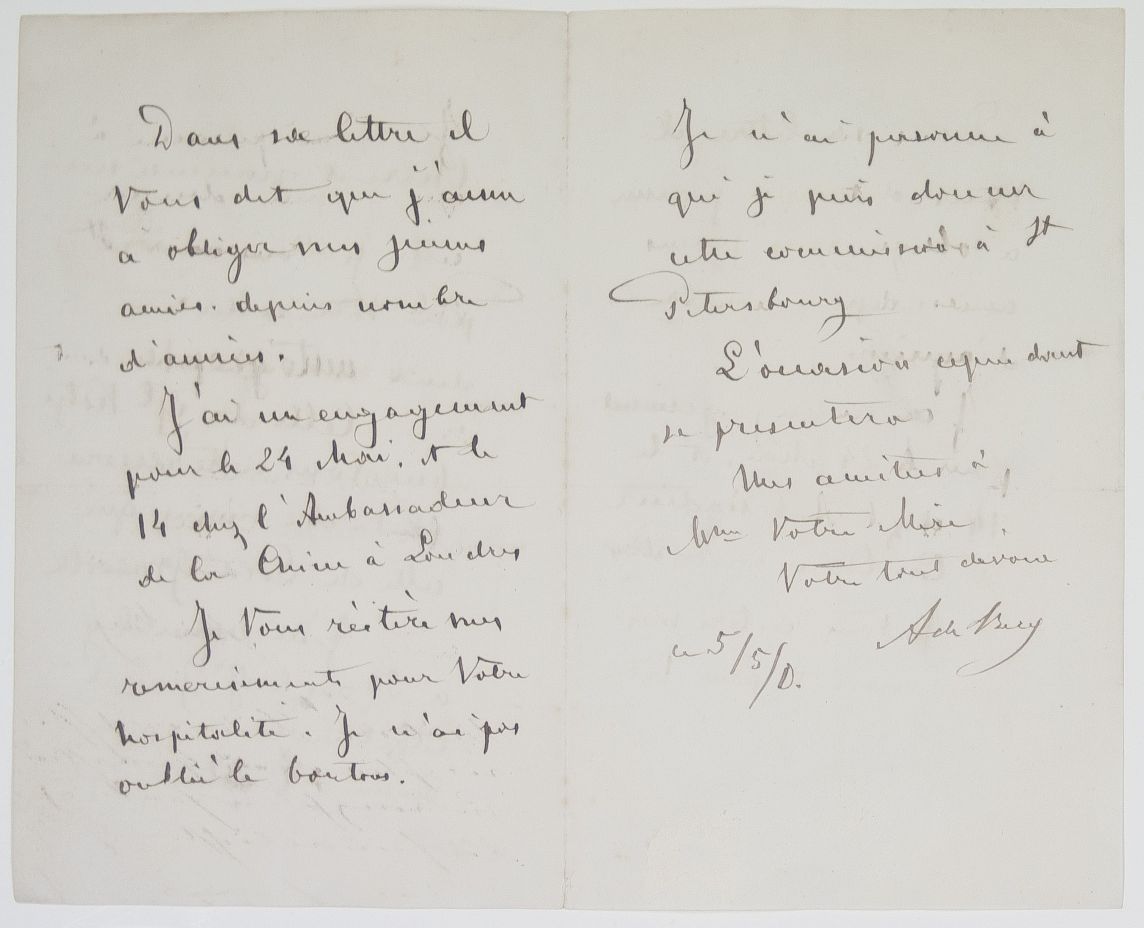 Dans sa lettre il
Vous dit que j'aime
à obliger mes jeunes
amies. depuis nombre
d'années.
J'ai un engagement
pour le 24 Mai, et le
14 chez l'Ambassadeur
de la Chine à Londres
Je Vous réitère mes
remerciments pour Votre
hospitalité. Je n'ai pas
oublié le boutons.
Je n'ai personne à
qui je puis donner
cette commission à St
Petersbourg
L'occasion cependant
se presentera
Mes amitiés à
Mme Votre Mère
Votre tout devoué
A de
ce 5/5/0.